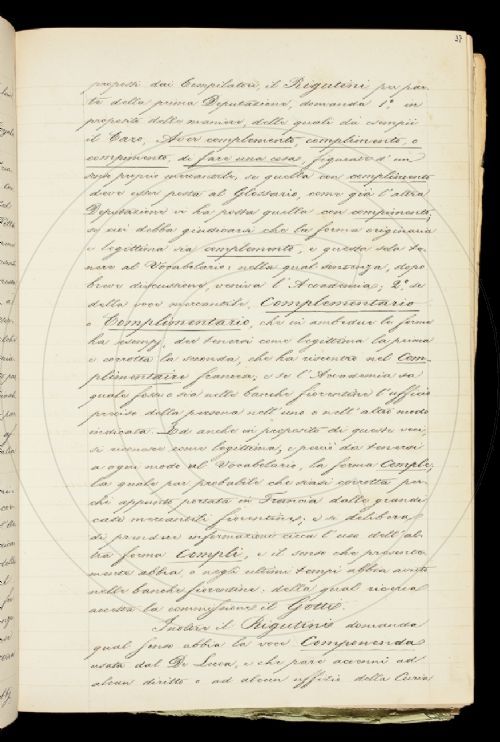 27
proposti dai Compilatori, il Rigutini per par-
te della prima Deputazione, domanda 1º. in
proposito delle maniere, delle quali dà esempii
il Caro, Aver complemento, complimento, o
compimento, di fare una cosa, figurato d'un
senso proprio mercantile, se quella con complimento
deve esser posta al Glossario, come già l'altra
Deputazione vi ha posta quella con compimento,
se cioè debba giudicarsi che la forma originaria
e legittima sia complemento, e questa sola te-
nere al Vocabolario; nella qual sentenza, dopo
breve discussione, veniva l'Accademia; 2º. se
della voce mercantile, Complementario
o Complimentario, che in ambedue le forme
ha esempj, dee tenersi come legittima la prima
e corrotta la seconda, che ha riscontro nel Com-
plimentaire francese; e se l'Accademia sa
quale fosse o sia nelle banche fiorentine l'ufficio
preciso della persona nell'uno o nell'altro modo
indicata. Ed anche in proposito di queste voci,
si riconosce come legittima, e perciò da tenersi
a ogni modo al Vocabolario, la forma Comple;
la quale par probabile che siasi corrotta per-
chè appunto portata in Francia dalle grandi
case mercantili fiorentine; e si delibera
di prendere informazioni circa l'uso dell'al-
tra forma Compli, e il senso che presente-
mente abbia, o negli ultimi tempi abbia avuto
nelle banche fiorentine: della qual ricerca
accetta la commissione il Gotti.
Inoltre il Rigutini domanda
qual senso abbia la voce Componenda
usata dal De Luca, e che pare accenni ad
alcun diritto o ad alcun uffizio della Curia